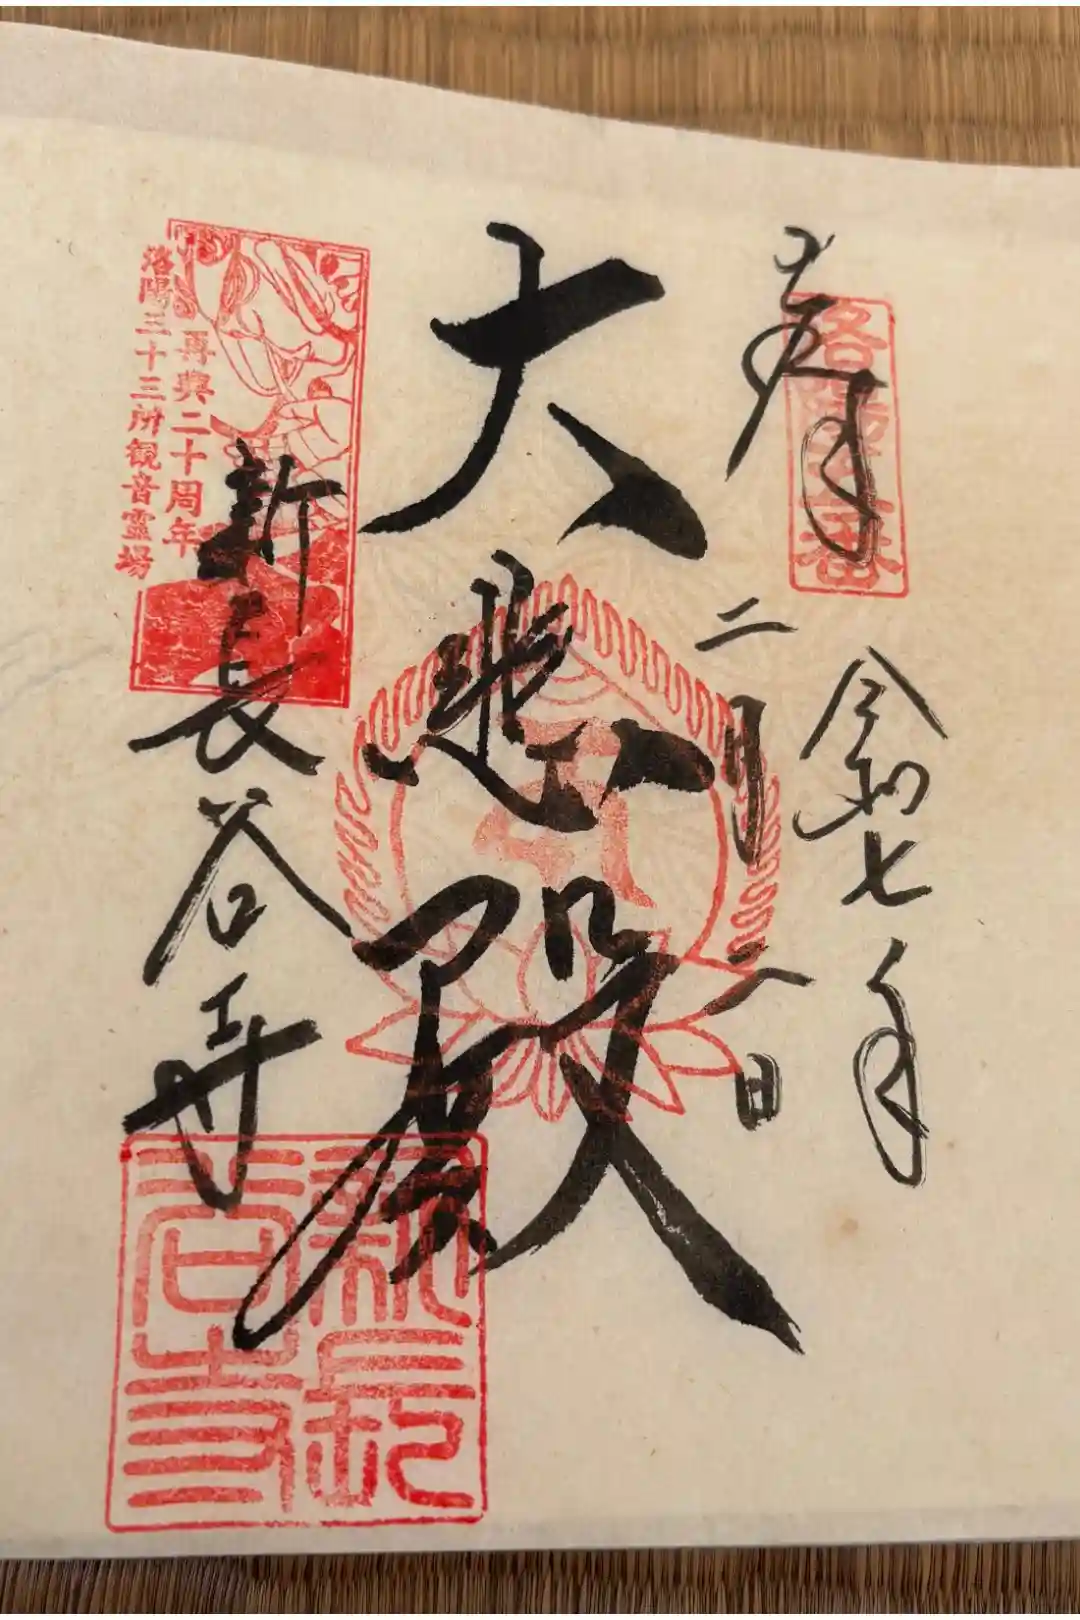 奉拝
洛陽五番
令和七年
二月八日
大悲殿
再興二十周年
洛陽三十三所観音霊場
新長谷寺
新長
谷寺